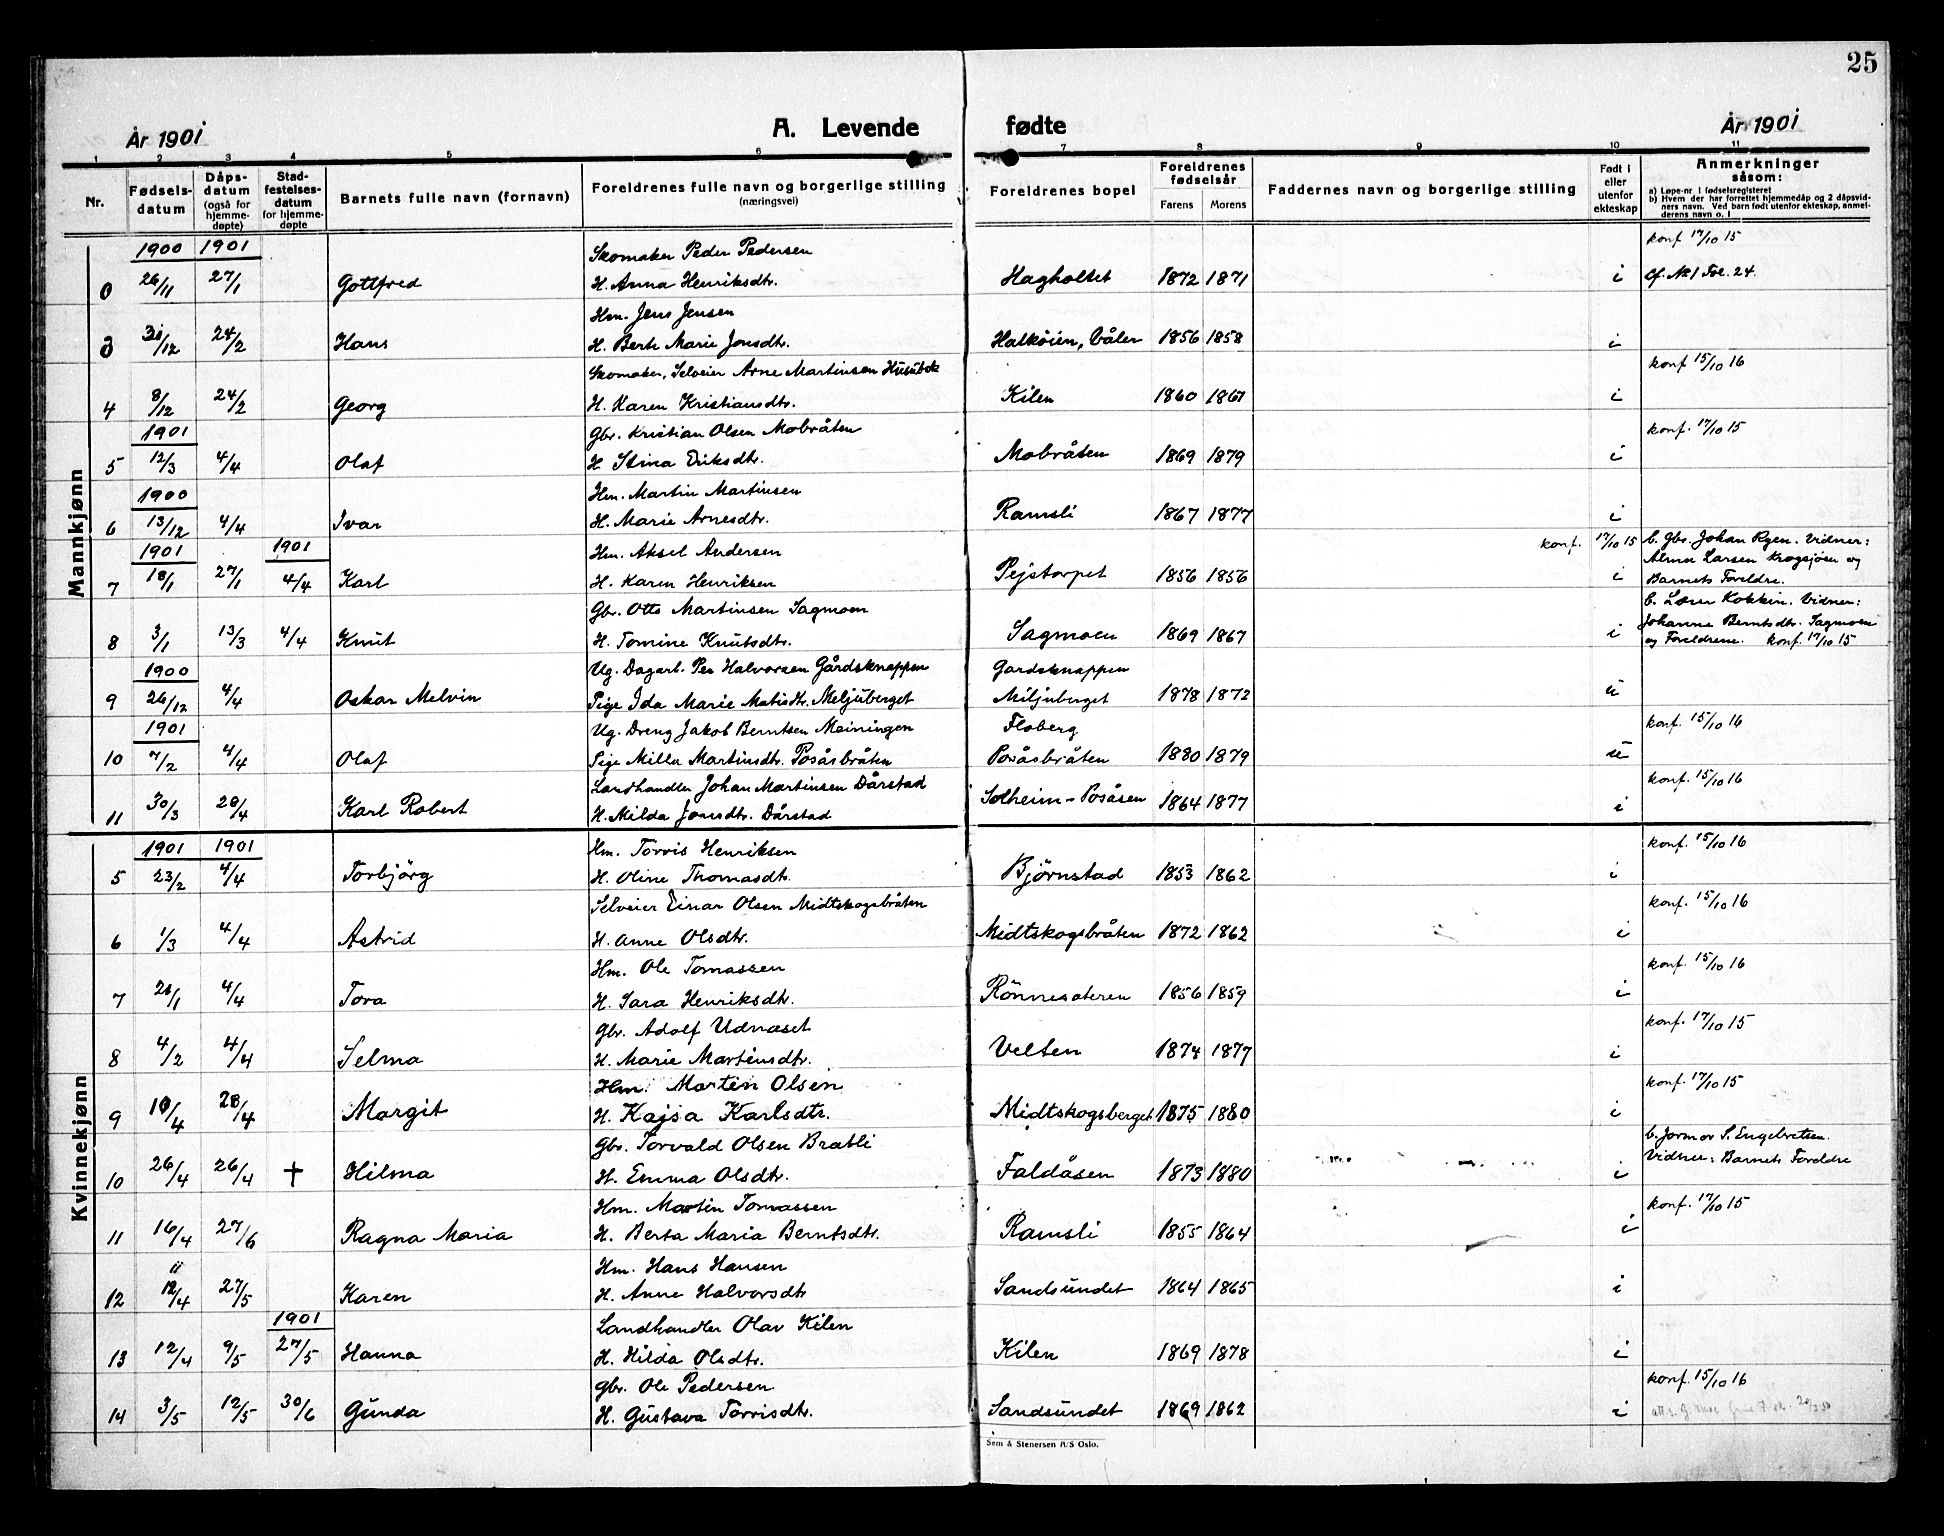 25
År 1901 A. Levende fødte År 1901
1 2 3 4 5 6 7 8 9 10 11
Nr. Fødsels-datum Dåps-datum (også for hjemme-døpte) Stad-festelses-datum for hjemme-døpte Barnets fulle navn (fornavn) Foreldrenes fulle navn og borgerlige stilling (næringsvei) Foreldrenes bopel Foreldrenes fødselsår Farens Morens Faddernes navn og borgerlige stilling Født i eller utenfor ekteskap Anmerkninger såsom: a) Løpe-nr. i fødselsregisteret b) Hvem der har forrettet hjemmedåp og 2 dåpsvidners navn. Ved barn født utenfor ekteskap, anmelderens navn o. l
Mannkjønn
1900 1901 Skomaker Peder Pedersen konf 17/10 15
26/11 27/1 Gottfred H. Anna Henriksdtr. Hagholtet 1872 1871 i cf. No 1 Fol. 24.
Hm. Jens Jensen
31/12 24/2 Hans H. Berte Marie Jonsdtr. Halköien, Våler 1856 1858 i
Skomaker, Selveier Arne Martinsen konf 15/10 16
4 8/12 24/2 Georg H. Karen Kristiansdtr. Kilen 1860 1867 i
1901 Gbr. Kristian Olsen Mobråten konf. 17/10 15
5 12/3 4/4 Olaf H. Stina Eriksdtr. Mobråten 1869 1879 i
1900 Hm. Martin Martinsen
6 13/12 4/4 Ivar H. Marie Arnesdtr. Ramsli 1867 1877 i
1901 1901 Hm. Aksel Andersen konf. 17/10 15 b. Gbr. Johan Ryen. Vidner:
7 18/1 27/1 4/4 Karl H. Karen Henriksen Pejstorpet 1856 1856 i Larsen og
Barnets Foreldre.
Gbr. Otto Martinsen Sagmoen b. Kokkin. Vidner:
8 3/1 13/3 4/4 Knut H. Tomine Knutsdtr. Sagmoen 1869 1867 i Johanne Berntsdtr. Sagmoen
og Foreldrene. konf. 17/10 15
1900 Ug. Dagarb. Per Halvorsen Gårdsknappen Gardsknappen
9 26/12 4/4 Oskar Melvin Pige Ida Marie Matisdtr. Meljuberget Miljuberget 1878 1872 u
1901 Ug. Dreng Jakob Berntsen Meiningen Floberg konf. 15/10 16
10 7/2 4/4 Olaf Pige Milla Martinsdtr. Posåsbråten Posåsbråten 1880 1879 u
Landhandler Johan Martinsen Dårstad konf. 15/10 16
11 30/3 28/4 Karl Robert H. Milda Jonsdtr. Dårstad Solheim - Posåsen 1864 1877 i
Kvinnekjønn
1901 1901 Hm. Torris Henriksen konf. 15/10 16
5 23/2 4/4 Torbjörg H. Oline Thomasdtr. Bjørnstad 1853 1862 i
Selveier Einar Olsen Midtskogsbråten konf. 15/10 16
6 1/3 4/4 Astrid H. Anne Olsdtr. Midtskogsbråten 1872 1862 i
Hm. Ole Tomassen konf. 15/10 16
7 21/1 4/4 Tora H. Sara Henriksdtr. Rönnesæteren 1856 1859 i
Gbr. Adolf Udnæset konf. 17/10 15
8 4/2 4/4 Selma H. Marie Martinsdtr. Velten 1874 1877 i
Hm. Martin Olsen konf. 17/10 15
9 10/4 28/4 Margit H. Kajsa Karlsdtr. Midtskogsberget 1875 1880 i
Gbr. Torvald Olsen Bratli b. Jormor S. Engebretsen.
10 26/4 26/4 † Hilma H. Emma Olsdtr. Faldåsen 1873 1880 i Vidner: Barnets Foreldre
Hm. Martin Tomassen konf. 17/10 15
11 16/4 27/6 Ragna Maria H. Berta Maria Berntsdtr. Ramsli 1855 1864 i
11 Hm. Hans Hansen
12 12/4 27/5 Karen H. Anne Halvorsdtr Sandsundet 1864 1865 i
1901 Landhandler Olav Kilen
13 12/4 9/5 27/5 Hanna H. Hilda Olsdtr. Kilen 1869 1878 i
Gbr. Ole Pedersen konf. 15/10 16
14 3/5 12/5 30/6 Gunda H. Gustava Torrisdtr. Sandsundet 1869 1862 i
Sem & Stenersen A/S Oslo.